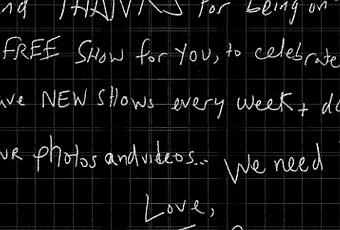 THANKS for being on
FREE SHOW for YOU, to celebrate
NEW SHOWS every week +
photos and videos... We need
Love,